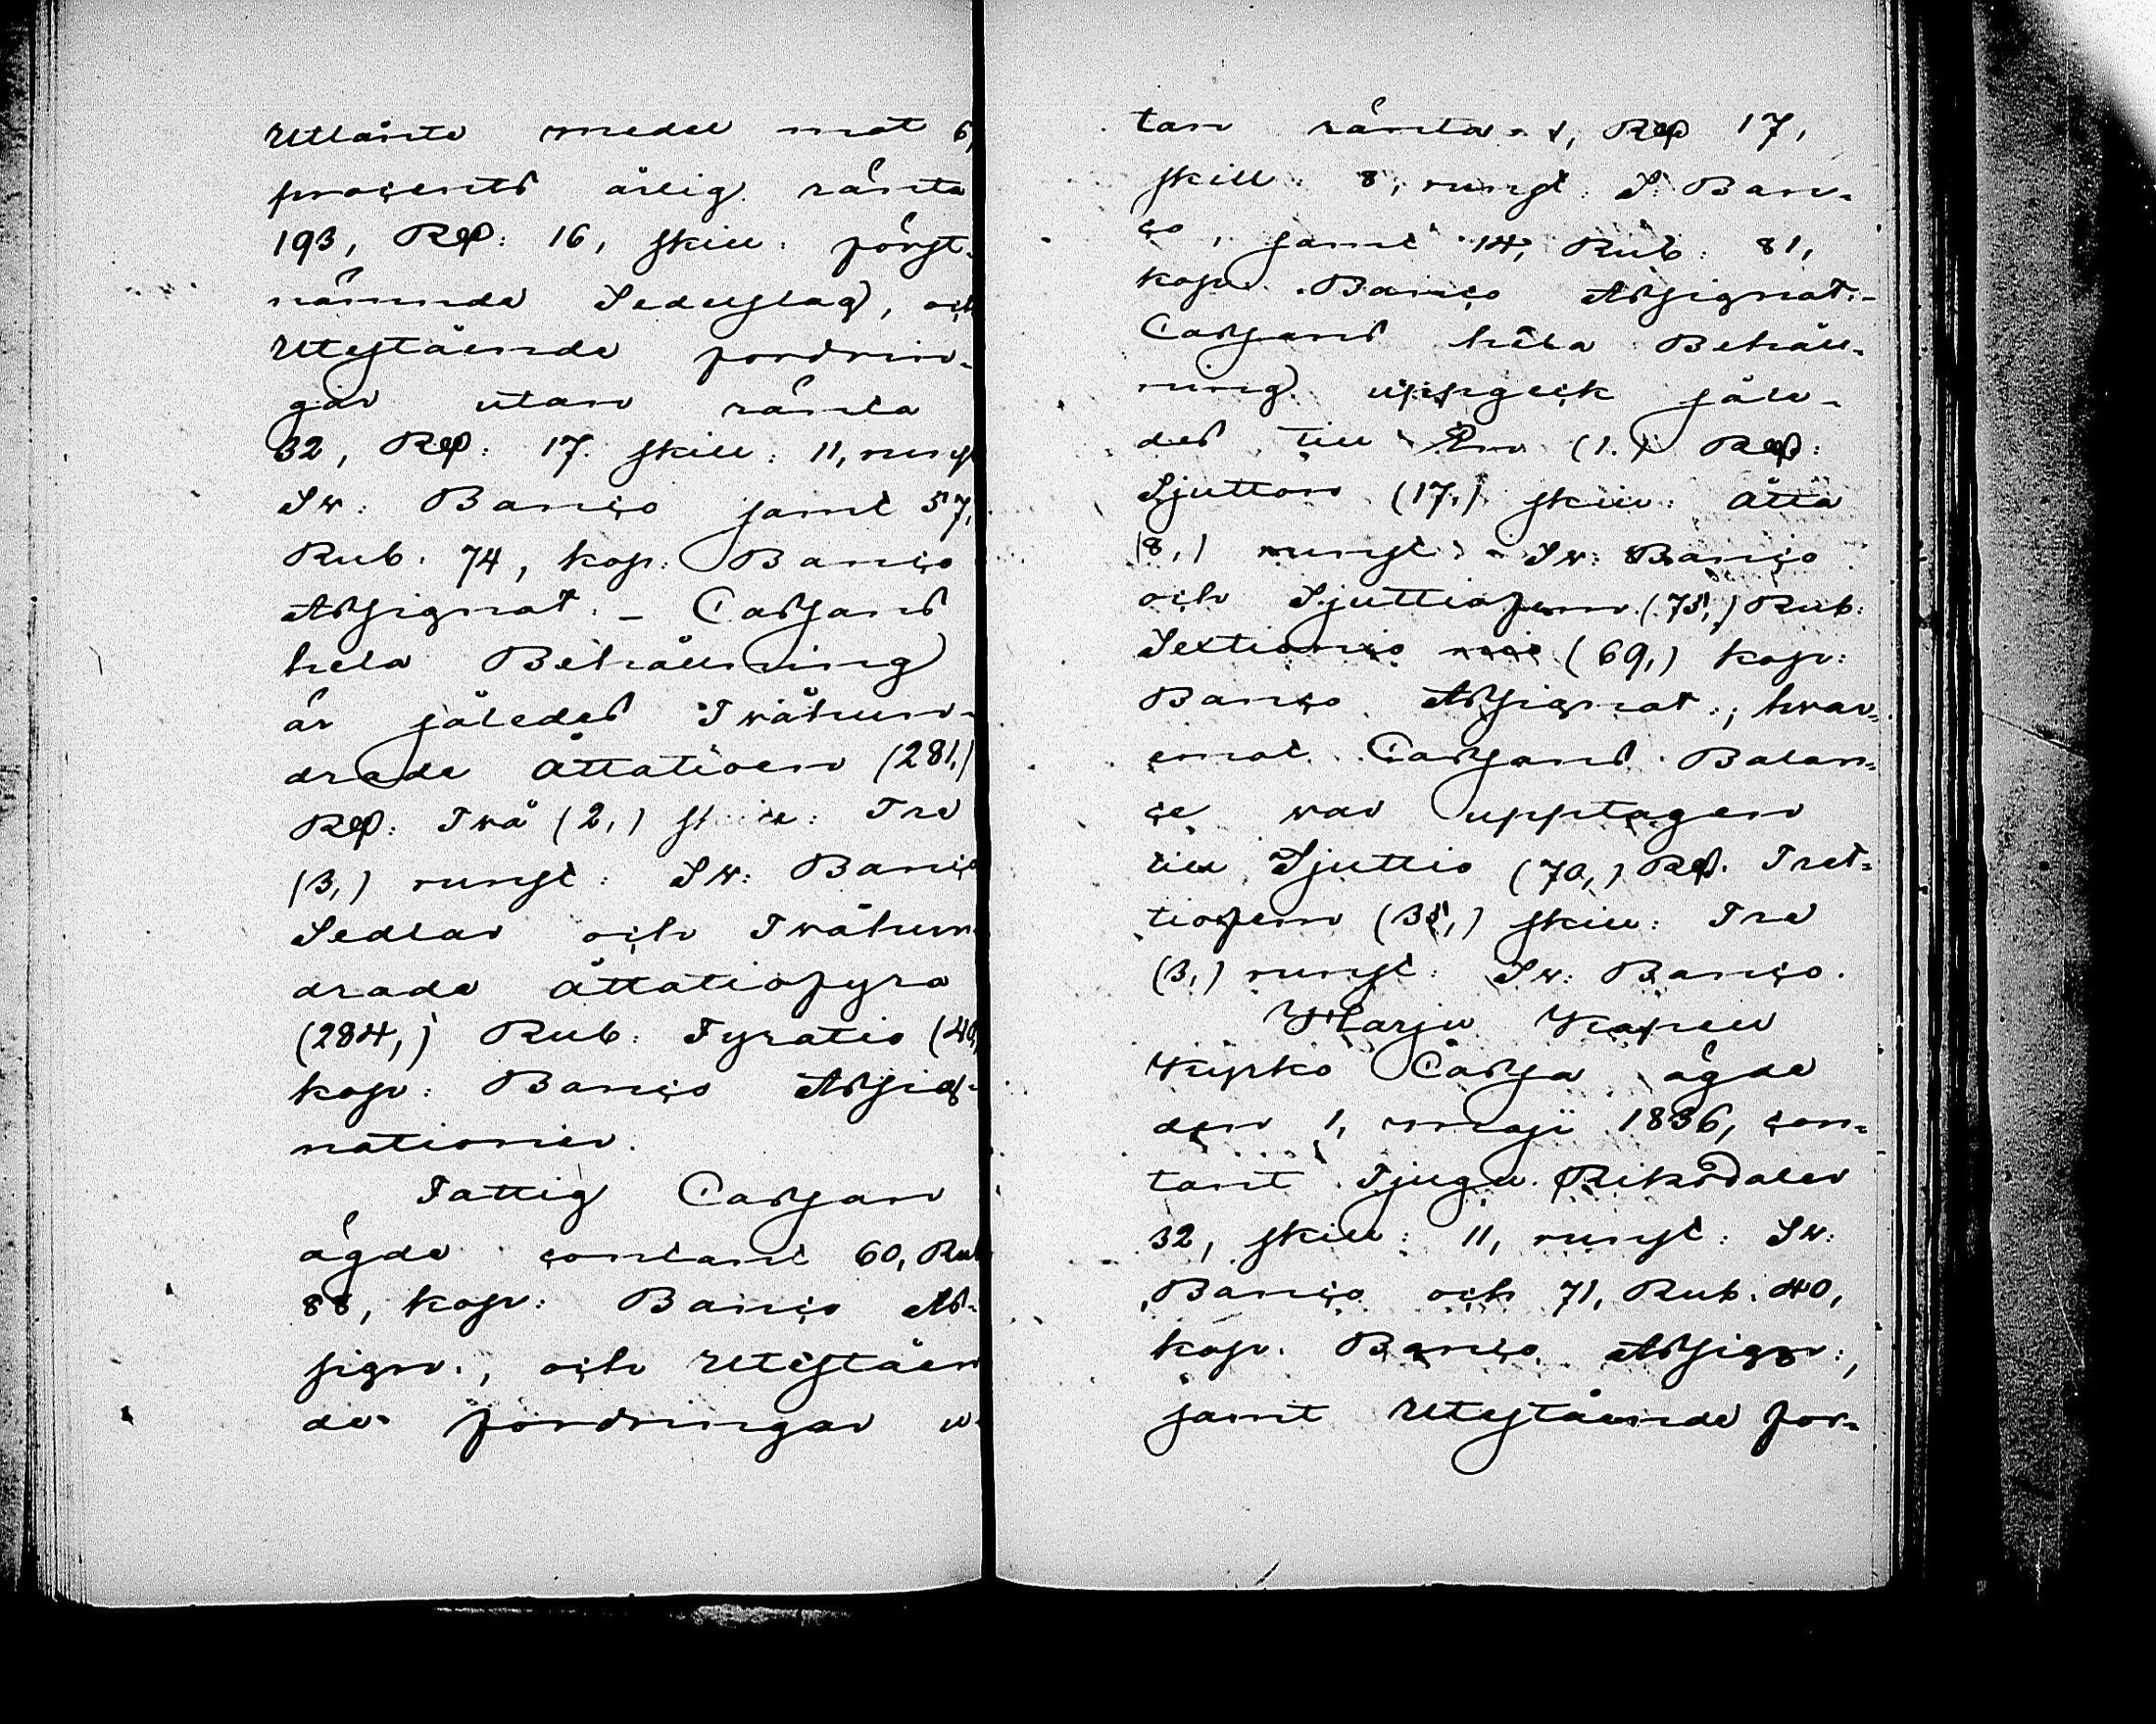 Utlånte medel mot 6,
procents årlig ränta
193, Rd: 16, skill: först-
nämnde Sedelslag, och
Utestående fordrin-
gar utan ränta
32, Rd: 17. skill: 11, runst
Sv: Banco samt 57,
Rub. 74, kop: Banco
Assignat. - Cassans
hela Behållning
är således Twåhun-
drade åttatioen (281,)
Rd: Twå (2,) skill: Tre
(3,) runst: Sv: Banco
Sedlar och Twåhun-
drade åttatiofyra
(284,) Rub: Fyratio (40,
kop: Banco Assig-
nationer.
Fattig Cassan
ägde contant 60, Rub
88, kop: Banco As-
sign., och Uteståen
de fordringar u-
tan ränta 1, Rd 17,
skill: 8, runst: S: Ban-
co, samt 14, Rub: 81,
kop. Banco Assignat.-
Cassans hela Behåll-
ning uppgick såle-
des till En (1.) Rd:
Sjutton (17,) skill: åtta
(8,) runst: Sv: Banco
och Sjuttiofem (75,) Rub:
Sextionio (69,) kop:
Banco Assignat., hwar-
emot Cassans Balan-
ce war upptagen
till Sjuttio (70,) Rd. Tret-
tiofem (35,) skill: Tre
(3,) runst: Sv: Banco.
Harju Kapell
Kyrko Cassa ägde
den 1, maji 1836, con-
tant Tjugu Riksdaler
32, skill: 11, runst: Sv:
Banco och 71, Rub. 40,
kop. Banco Assign:,
samt Utestående for-